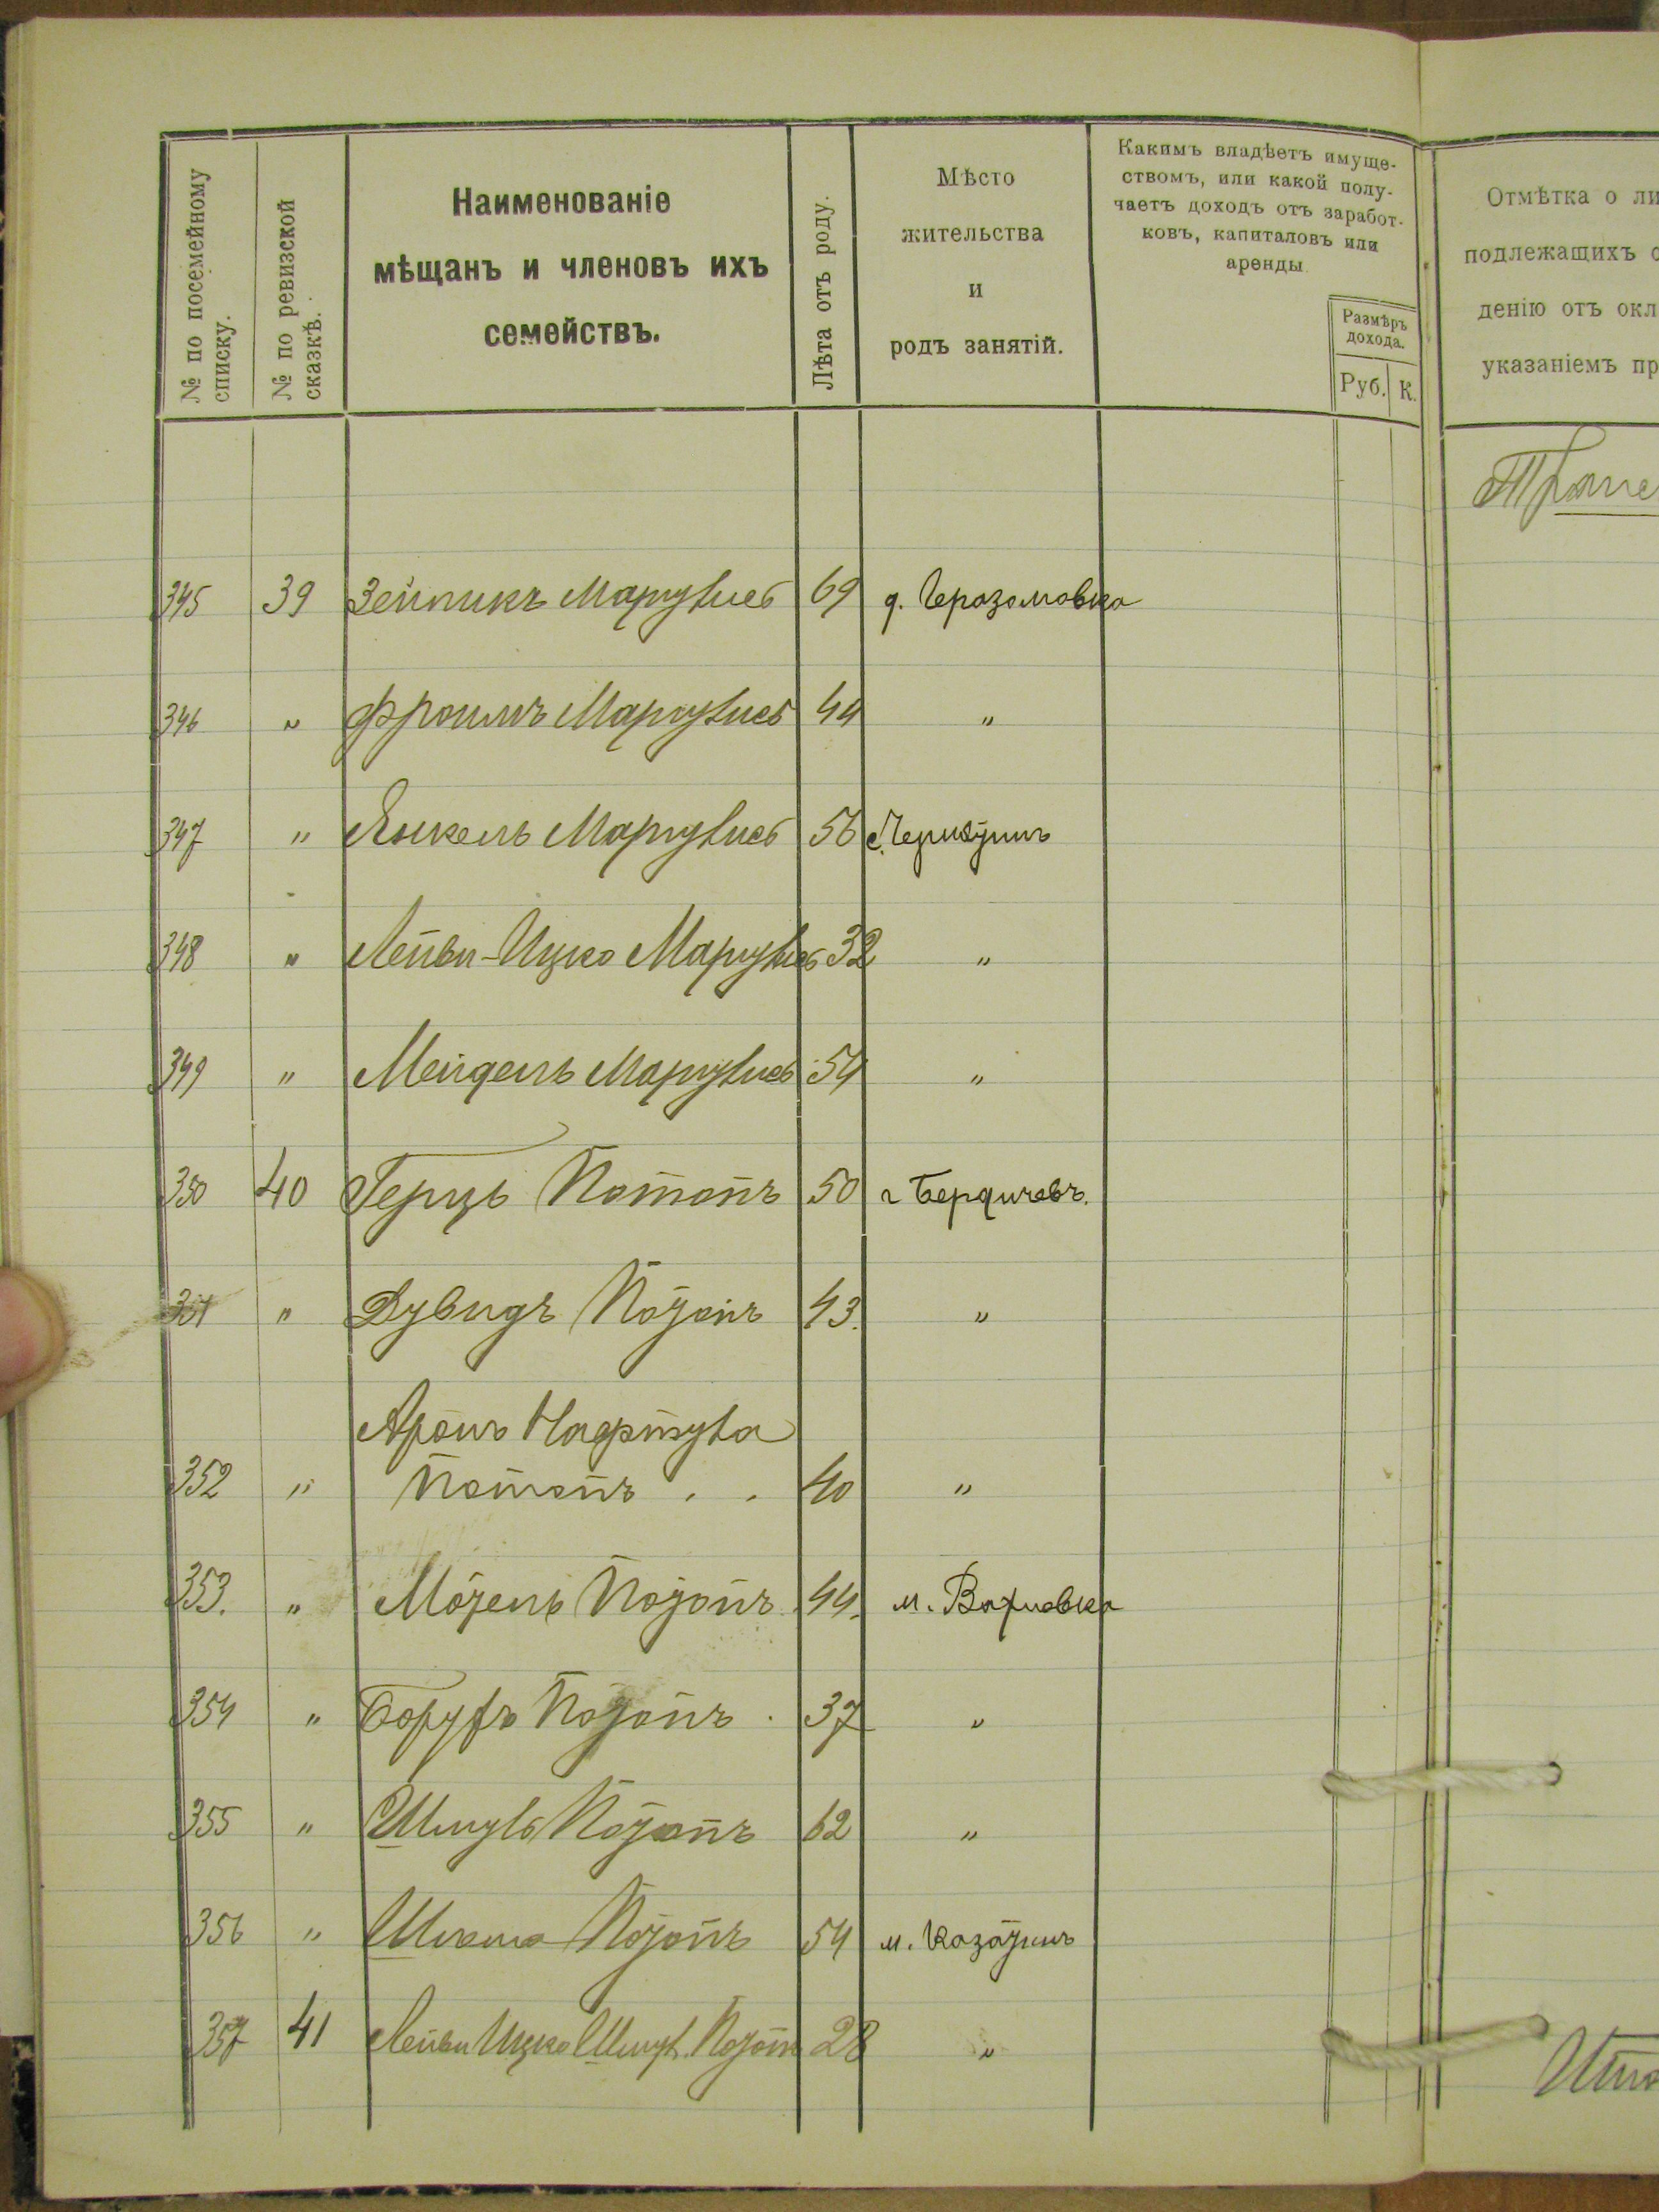 № по посемейному
списку.
№ по ревизской
сказкѣ.
Наименованіе
мѣщанъ и членовъ ихъ
семействъ.
Лѣта отъ роду.
Мѣсто
жительства
и
родъ занятій.
Какимъ владѣетъ имуще-
ствомъ, или какой полу-
чаетъ доходъ отъ заработ-
ковъ, капиталовъ или
аренды
Размѣръ
дохода.
Руб. К.
Отмѣтка о ли
подлежащихъ о
денію отъ окл
указаніемъ пр
345 39 69 д.
346 " Фроимъ 44 "
347 " Янкель 56 с.
348 " Лейви-Ицко 32 "
349 " 54 "
350 40 Герцъ Потопъ 50 г Бердичевъ.
351 " Дувидъ Потопъ 43. "
Аронъ Нафтула
352 " Потопъ . . 40 "
353. " Мотель Потопъ 44. м. Вахновка
354 " Борухъ Потопъ . 37 "
355 " Шмуль Потопъ 62 "
356 " Потопъ 54 м. Казатинъ
357 41 Лейви Ицко Шмул. Потопъ 28 "